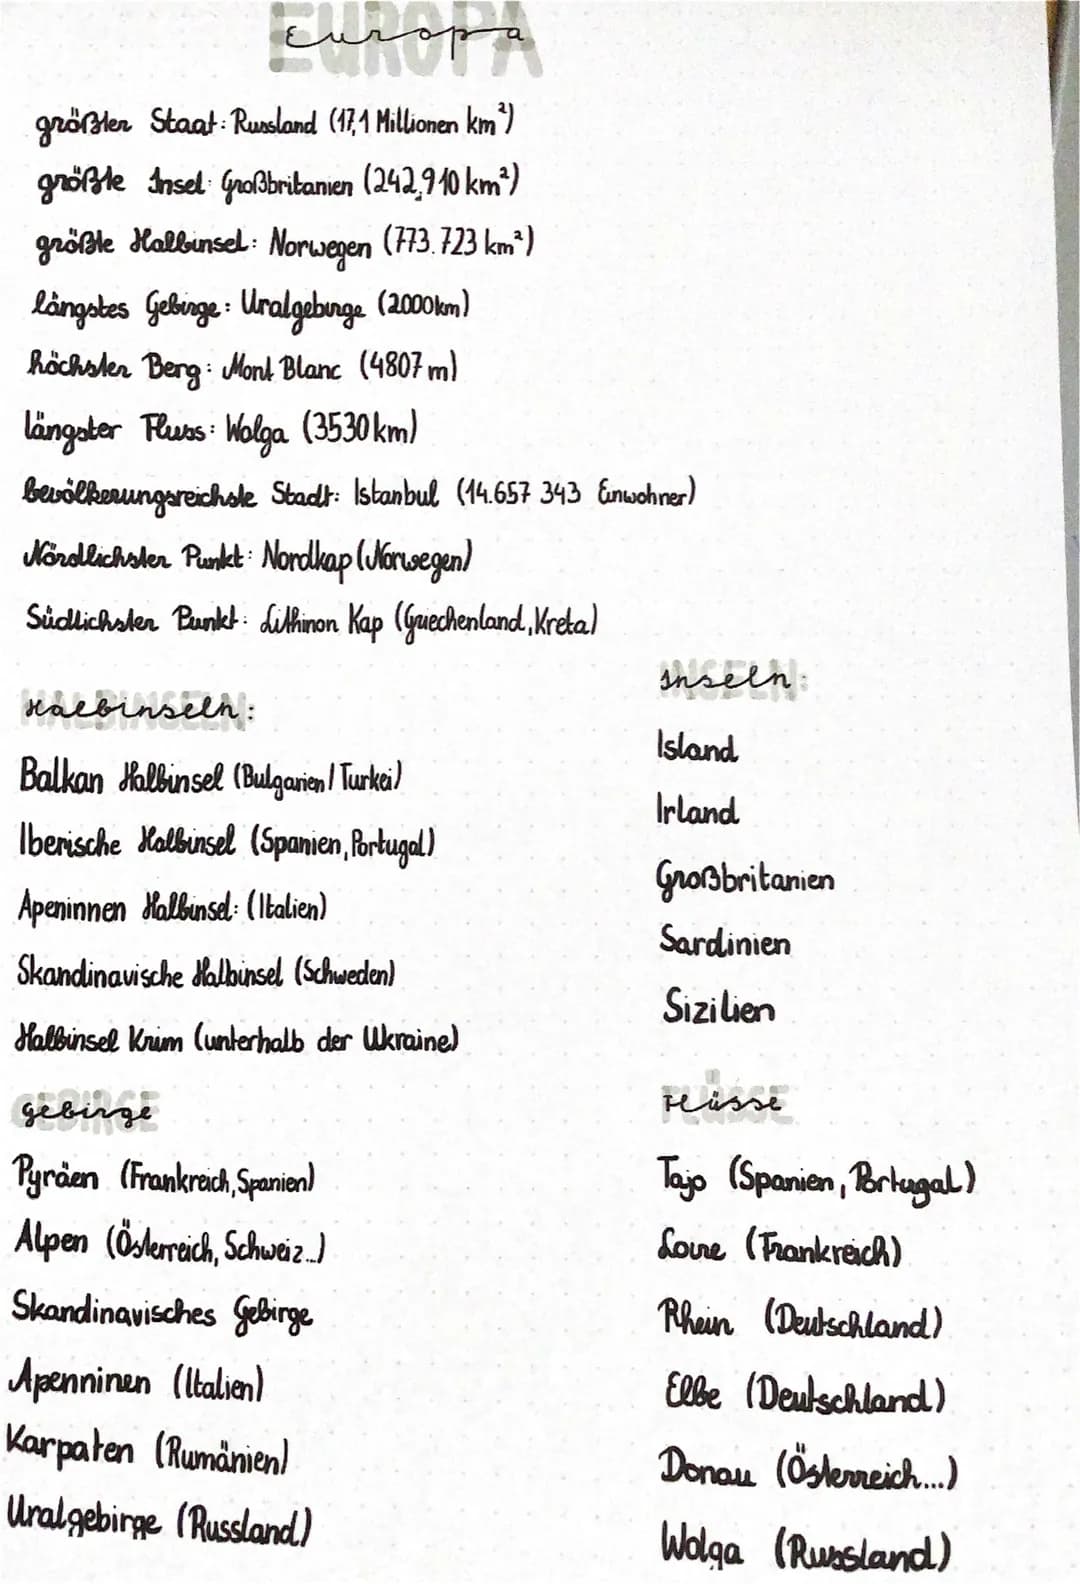 Europa
größter Staat: Russland (17,1 Millionen km²)
größte Insel: Großbritanien (242,910 km²)
größte Halbinsel: Norwegen (773.723 km²)
längstes Gebirge: Uralgebirge (2000km)
höchster Berg: Mont Blanc (4807 m)
längster Fluss: Wolga (3530 km)
bevölkerungsreichste Stadt: Istanbul (14.657 343 Einwohner)
Nördlichster Punkt: Nordkap (Norwegen)
Südlichster Punkt: Lithinon Kap (Griechenland, Kreta)
Halbinseln:
Balkan Halbinsel (Bulgarien / Turkei)
Iberische Halbinsel (Spanien, Portugal)
Apeninnen Halbinsel: (Italien)
Skandinavische Halbinsel (Schweden)
Halbinsel Krim (unterhalb der Ukraine)
Inseln:
Island
Irland
Großbritanien
Sardinien
Sizilien
Gebirge
Pyräen (Frankreich, Spanien)
Alpen (Österreich, Schweiz...)
Skandinavisches Gebirge
Apenninen (Italien)
Karpaten (Rumänien)
Uralgebirge (Russland)
Flüsse
Tajo (Spanien, Portugal)
Loire (Frankreich)
Rhein (Deutschland)
Elbe (Deutschland)
Donau (Österreich...)
Wolga (Russland)